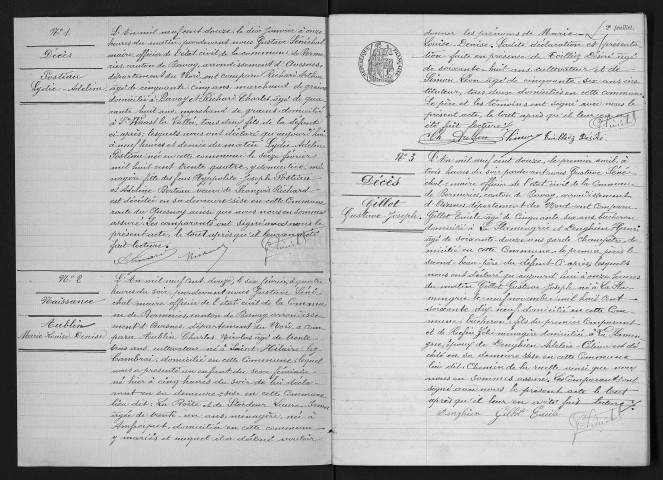 N° 1
Décès
Postiau
Lydie-Adeline
L'An mil neuf cent douze, le dix janvier à onze
heures du matin, pardevant nous Gustave Sénéchal
maire, officier de l'état civil de la commune de Berme
ries, canton de Bavay, arrondissement d'Avesnes,
département du Nord, ont comparu Richard Arthur
âgé de cinquante cinq ans, marchand de grains
domicilié à Bavay et Richard Charles âgé de qua
rante huit ans, marchand de grains domicilié
à St Waast la Vallée, tous deux fils de la défunte
ci-après; lesquels nous ont déclaré que aujourd'hui
à neuf heures et demie du matin Lydie Adeline
Postiau née en cette commune le seize février
mil huit cent trente quatre, ménagère
fille des feus Hyppolite Joseph Postiau
et Adeline Berteau veuve de François Richard
est décédée en sa demeure sise en cette commune
route du Quesnoy ainsi que nous nous en sommes
assuré. Les comparants ont signé avec nous le
présent acte, le tout après que il leur en a été
fait lecture.
N° 2
Naissance
Aublin
Marie-Louise Denise
L'An mil neuf cent douze, le dix février, à quatre
heures du soir pardevant nous Gustave Séné
chal maire officier de l'état civil de la commune
de Bermeries, canton de Bavay arrondissement
d'Avesnes, département du Nord, a com
paru Aublin Charles Nicolas âgé de trente
ans, cultivateur, né à Saint Hilaire lez
Cambrai, domicilié en cette commune, lequel
nous a présenté un enfant du sexe féminin
né hier à cinq heures du soir de lui décla
rant en sa demeure sise en cette commune
lieu dit: La
âgée de trente un ans, ménagère, née à
Amfroipret, domiciliée en cette commune
y mariés et auquel il a déclaré vouloir
2e feuillet
donner les prénoms de Marie
Louise Denise. Ladite déclaration et présenta
tion faite en présence de Toilliez Désiré âgé
de soixante huit ans, cultivateur et de
Simon Léon âgé de cinquante six ans, ins
tituteur, tous deux domiciliés en cette commune
Le père et les témoins ont signé avec nous le
présent acte, le tout après que il leur en a
été fait lecture.
Ch Aublin Simon Toilliez Désiré
N° 3
Décès
Gillot
Gustave Joseph
L'An mil neuf cent douze, le premier avril, à
trois heures du soir pardevant nous Gustave Séné
chal, maire officier de l'état civil de la Commune
de Bermeries, canton de Bavay, arrondissement
d'Avesnes, département du Nord ont comparu
Gillot Emile âgé de cinquante six ans, bucheron
domicilié à La Flamengrie et Denghien Henri
âgé de soixante douze ans garde champêtre do
micilié en cette Commune, le premier père le
second beau-père du défunt ci-après, lesquels
nous ont déclaré qu'aujourd'hui à onze heures
du matin Gillot Gustave Joseph né à La Fla
mengrie le neuf novembre mil huit cent
soixante dix neuf domicilié en cette Com
mune, bucheron fils du premier Comparant
et de
grie, époux de Denghien est dé
cédé en sa demeure sise en cette Commune
lieu dit: Chemin de la ruelle ainsi que nous
nous en sommes assuré. Les Comparants ont
signé avec nous le présent acte le tout
après que il leur en a été fait lecture.
Denghien Gillot Emile